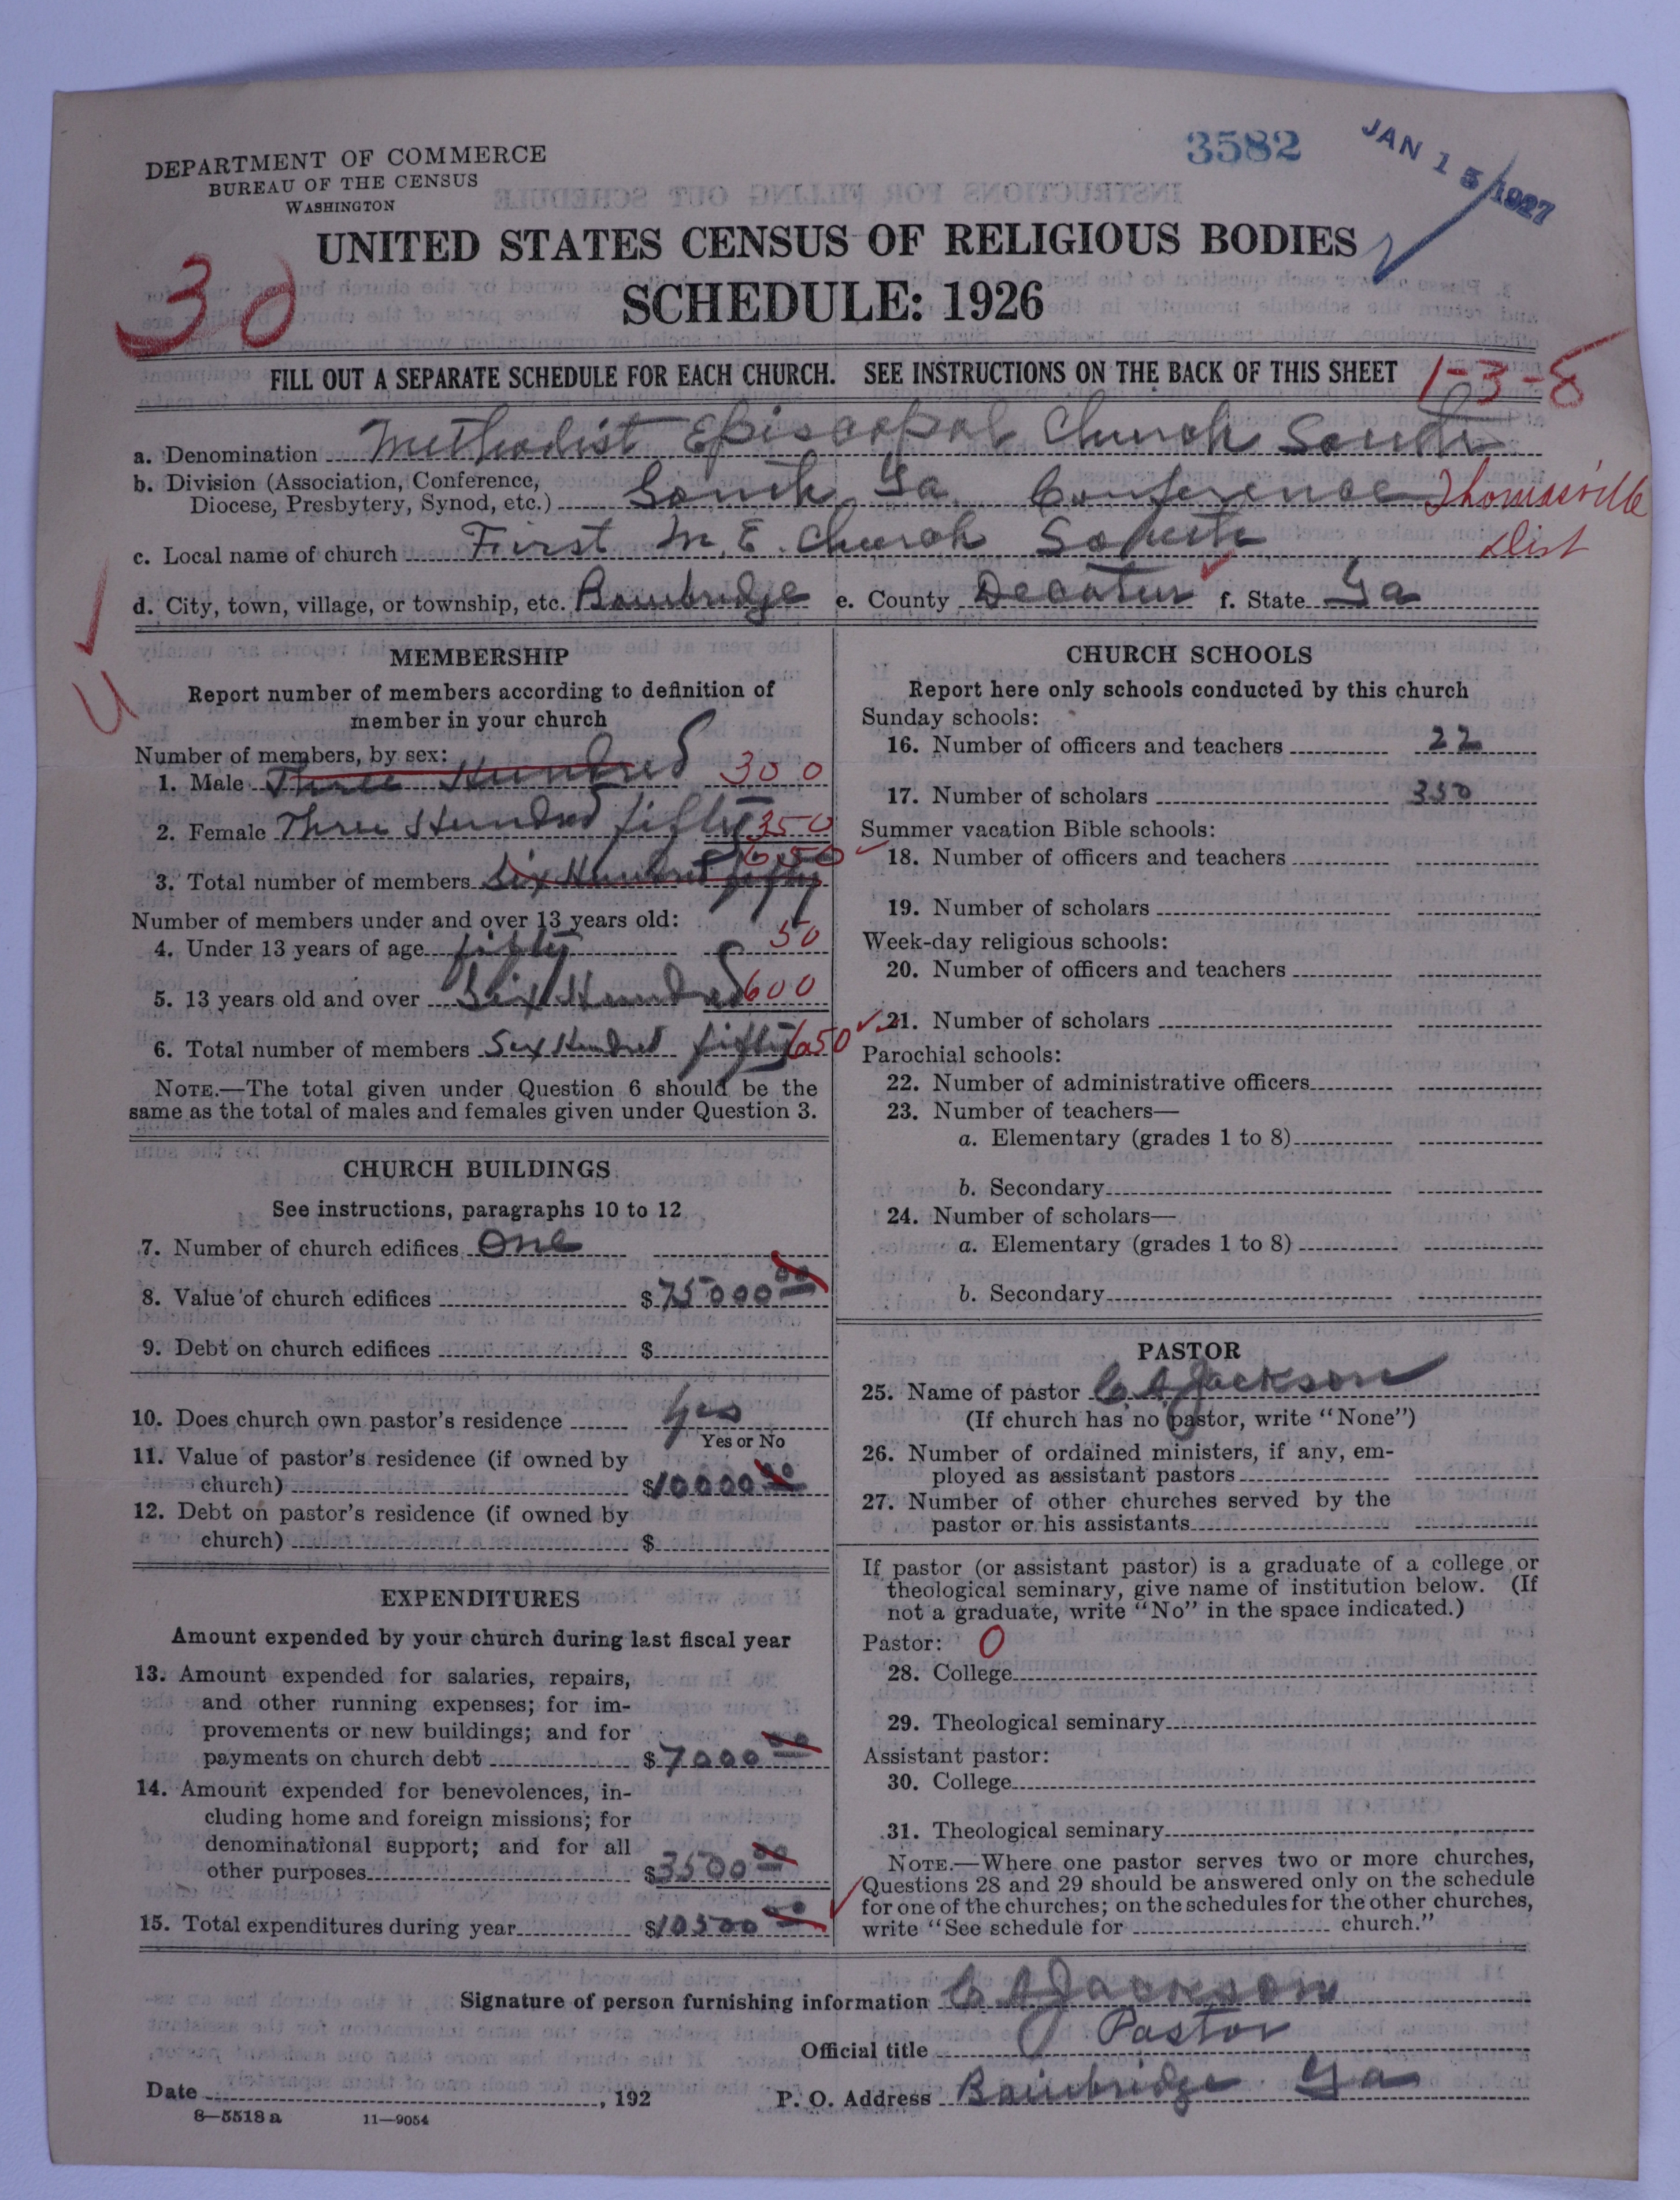 DEPARTMENT OF COMMERCE
BUREAU OF THE CENSUS
WASHINGTON
3582
JAN 15 1927
UNITED STATES CENSUS OF RELIGIOUS BODIES
SCHEDULE: 1926
30
FILL OUT A SEPARATE SCHEDULE FOR EACH CHURCH. SEE INSTRUCTIONS ON THE BACK OF THIS SHEET
1-3-8
a. Denomination Methodist Episcopal Church South
b. Division (Association, Conference,
Diocese, Presbytery, Synod, etc.) South Ga. Conference Thomasville
Dist
c. Local name of church First M. E. Church South
d. City, town, village, or township, etc. Bainbridge e. County Decatur f. State Ga
MEMBERSHIP
Report number of members according to definition of
member in your church
Number of members, by sex:
1. Male Three Hundred 300
2. Female Three Hundred fifty 350
650
3. Total number of members Six Hundred fifty
Number of members under and over 13 years old:
4. Under 13 years of age fifty 50
5. 13 years old and over Six Hundred 600
6. Total number of members Six Hundred fifty 650
NOTE.—The total given under Question 6 should be the
same as the total of males and females given under Question 3.
CHURCH BUILDINGS
See instructions, paragraphs 10 to 12
7. Number of church edifices One
8. Value of church edifices $75000 00
9. Debt on church edifices $
10. Does church own pastor's residence Yes
Yes or No
11. Value of pastor's residence (if owned by
church) $10000 00
12. Debt on pastor's residence (if owned by
church) $
EXPENDITURES
Amount expended by your church during last fiscal year
13. Amount expended for salaries, repairs,
and other running expenses; for im-
provements or new buildings; and for
payments on church debt $7000 00
14. Amount expended for benevolences, in-
cluding home and foreign missions; for
denominational support; and for all
other purposes $3500 00
15. Total expenditures during year $10500 00
CHURCH SCHOOLS
Report here only schools conducted by this church
Sunday schools:
16. Number of officers and teachers 22
17. Number of scholars 350
Summer vacation Bible schools:
18. Number of officers and teachers
19. Number of scholars
Week-day religious schools:
20. Number of officers and teachers
21. Number of scholars
Parochial schools:
22. Number of administrative officers
23. Number of teachers—
a. Elementary (grades 1 to 8)
b. Secondary
24. Number of scholars—
a. Elementary (grades 1 to 8)
b. Secondary
PASTOR
25. Name of pastor C. A. Jackson
(If church has no pastor, write "None")
26. Number of ordained ministers, if any, em-
ployed as assistant pastors
27. Number of other churches served by the
pastor or his assistants
If pastor (or assistant pastor) is a graduate of a college or
theological seminary, give name of institution below. (If
not a graduate, write "No" in the space indicated.)
Pastor: 0
28. College
29. Theological seminary
Assistant pastor:
30. College
31. Theological seminary
NOTE.—Where one pastor serves two or more churches,
Questions 28 and 29 should be answered only on the schedule
for one of the churches; on the schedules for the other churches,
write "See schedule for church."
Signature of person furnishing information C A Jackson
Official title Pastor
Date , 192 P. O. Address Bainbridge Ga
8—5518 a 11—9054